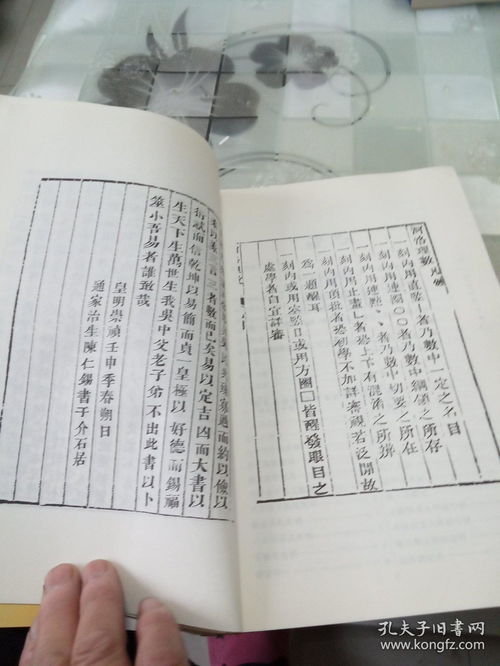 河洛理數凡例
一刻內用直竪｜者乃數中一定之名目
一刻內用連圈○○者乃數中綱領之所存
一刻內用連點、、者乃數中切要之所在
一刻內用止畫乚者恐上下有混淆之所辨
一刻內用頂批者恐初學不加詳審視若泛閒故
為一過醒耳
一刻內或用空點日或用方圈□皆醒發眼目之
處學者自宜詳審
者數而已矣易以定吉凶而大書以
衍疏而信乾坤以易簡而貞一皇極以好德而錫福
生天下生萬世生我吳中父老子弟不出此書以卜
筮小吾易者誰敢哉
皇明崇禎壬申季春朔日
通家治生陳仁錫書于介石居
孔夫子旧书网
www.kongfz.com